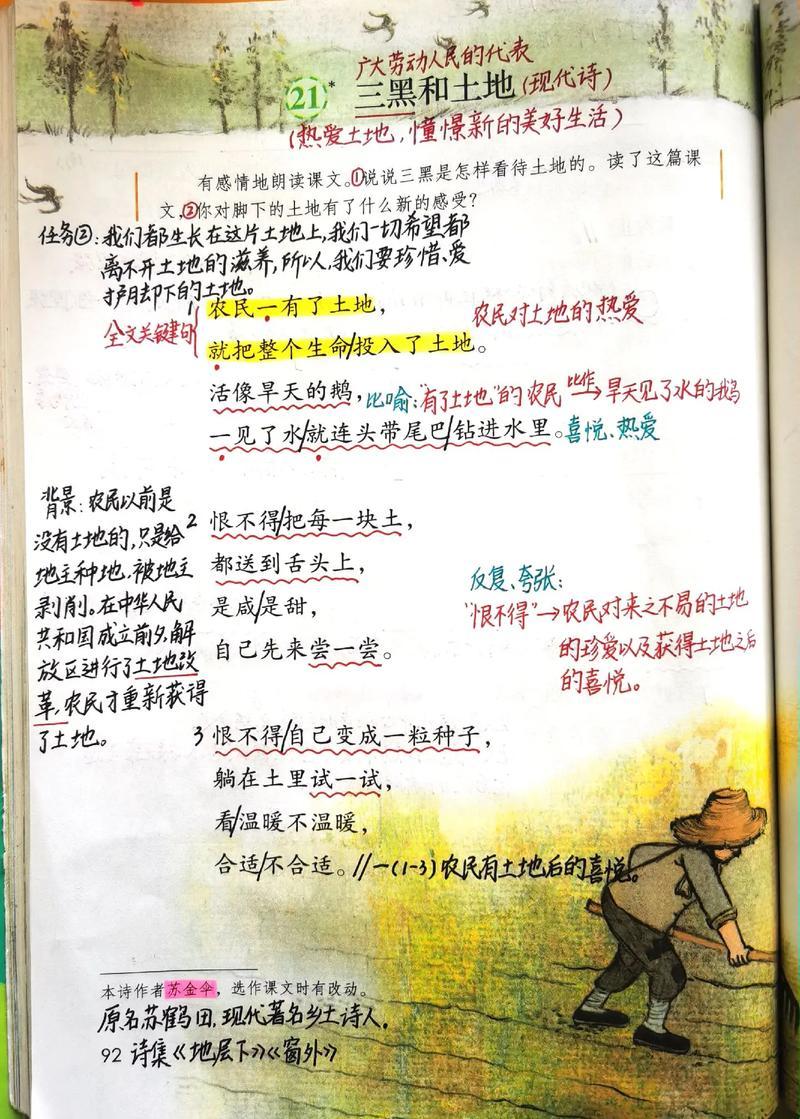 广大劳动人民的代表
21* 三黑和土地(现代诗)
(热爱土地,憧憬新的美好生活)
有感情地朗读课文。①说说三黑是怎样看待土地的。读了这篇课
文,②你对脚下的土地有了什么新的感受?
任务②:我们都生长在这片土地上,我们一切希望都
离不开土地的滋养,所以,我们要珍惜、爱
护却下的土地。
1 农民一有了土地,
农民对土地的热爱
全文关键句
就把整个生命/投入了土地。
活像旱天的鹅,比喻:"有了土地"的农民 比作→ 旱天见了水的鹅
一见了水/就连头带尾巴/钻进水里。喜悦、热爱
背景:农民以前是
没有土地的,只是给
地主种地,被地主
剥削。在中华人民
共和国成立前夕,解
放区进行了土地改
革,农民才重新获得
了土地。
2 恨不得/把每一块土,
都送到舌头上,
是咸/是甜,
自己先来尝一尝。
反复、夸张:
"恨不得"→农民对来之不易的土地
的珍爱以及获得土地之后
的喜悦。
3 恨不得/自己变成一粒种子,
躺在土里试一试,
看/温暖不温暖,
合适/不合适。//一(1-3)农民有土地后的喜悦。
本诗作者苏金伞,选作课文时有改动。
原名苏鹤田,现代著名乡土诗人。
92 诗集《地层下》《窗外》